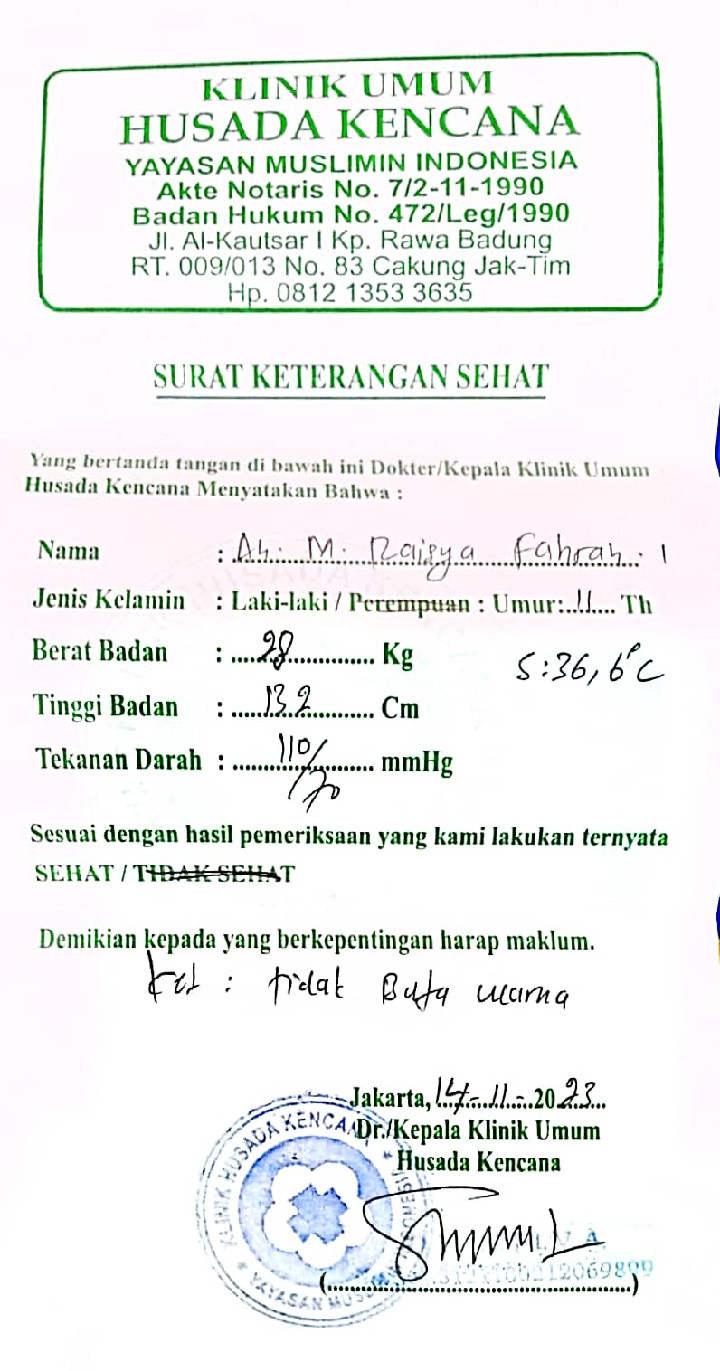 KLINIK UMUM
HUSADA KENCANA
YAYASAN MUSLIMIN INDONESIA
Akte Notaris No. 7/2-11-1990
Badan Hukum No. 472/Leg/1990
Jl. Al-Kautsar I Kp. Rawa Badung
RT. 009/013 No. 83 Cakung Jak-Tim
Hp. 0812 1353 3635
SURAT KETERANGAN SEHAT
Yang bertanda tangan di bawah ini Dokter/Kepala Klinik Umum
Husada Kencana Menyatakan Bahwa :
Nama : An. M. Raisya Fahrah
Jenis Kelamin : Laki-laki / Perempuan : Umur: 11 Th
Berat Badan : 28 Kg S : 36,6°C
Tinggi Badan : 132 Cm
Tekanan Darah : 110/70 mmHg
Sesuai dengan hasil pemeriksaan yang kami lakukan ternyata
SEHAT / TIDAK SEHAT
Demikian kepada yang berkepentingan harap maklum.
Ket : tidak Buta warna
Jakarta, 14-11-2023
Dr./Kepala Klinik Umum
Husada Kencana
KLINIK HUSADA KENCANA